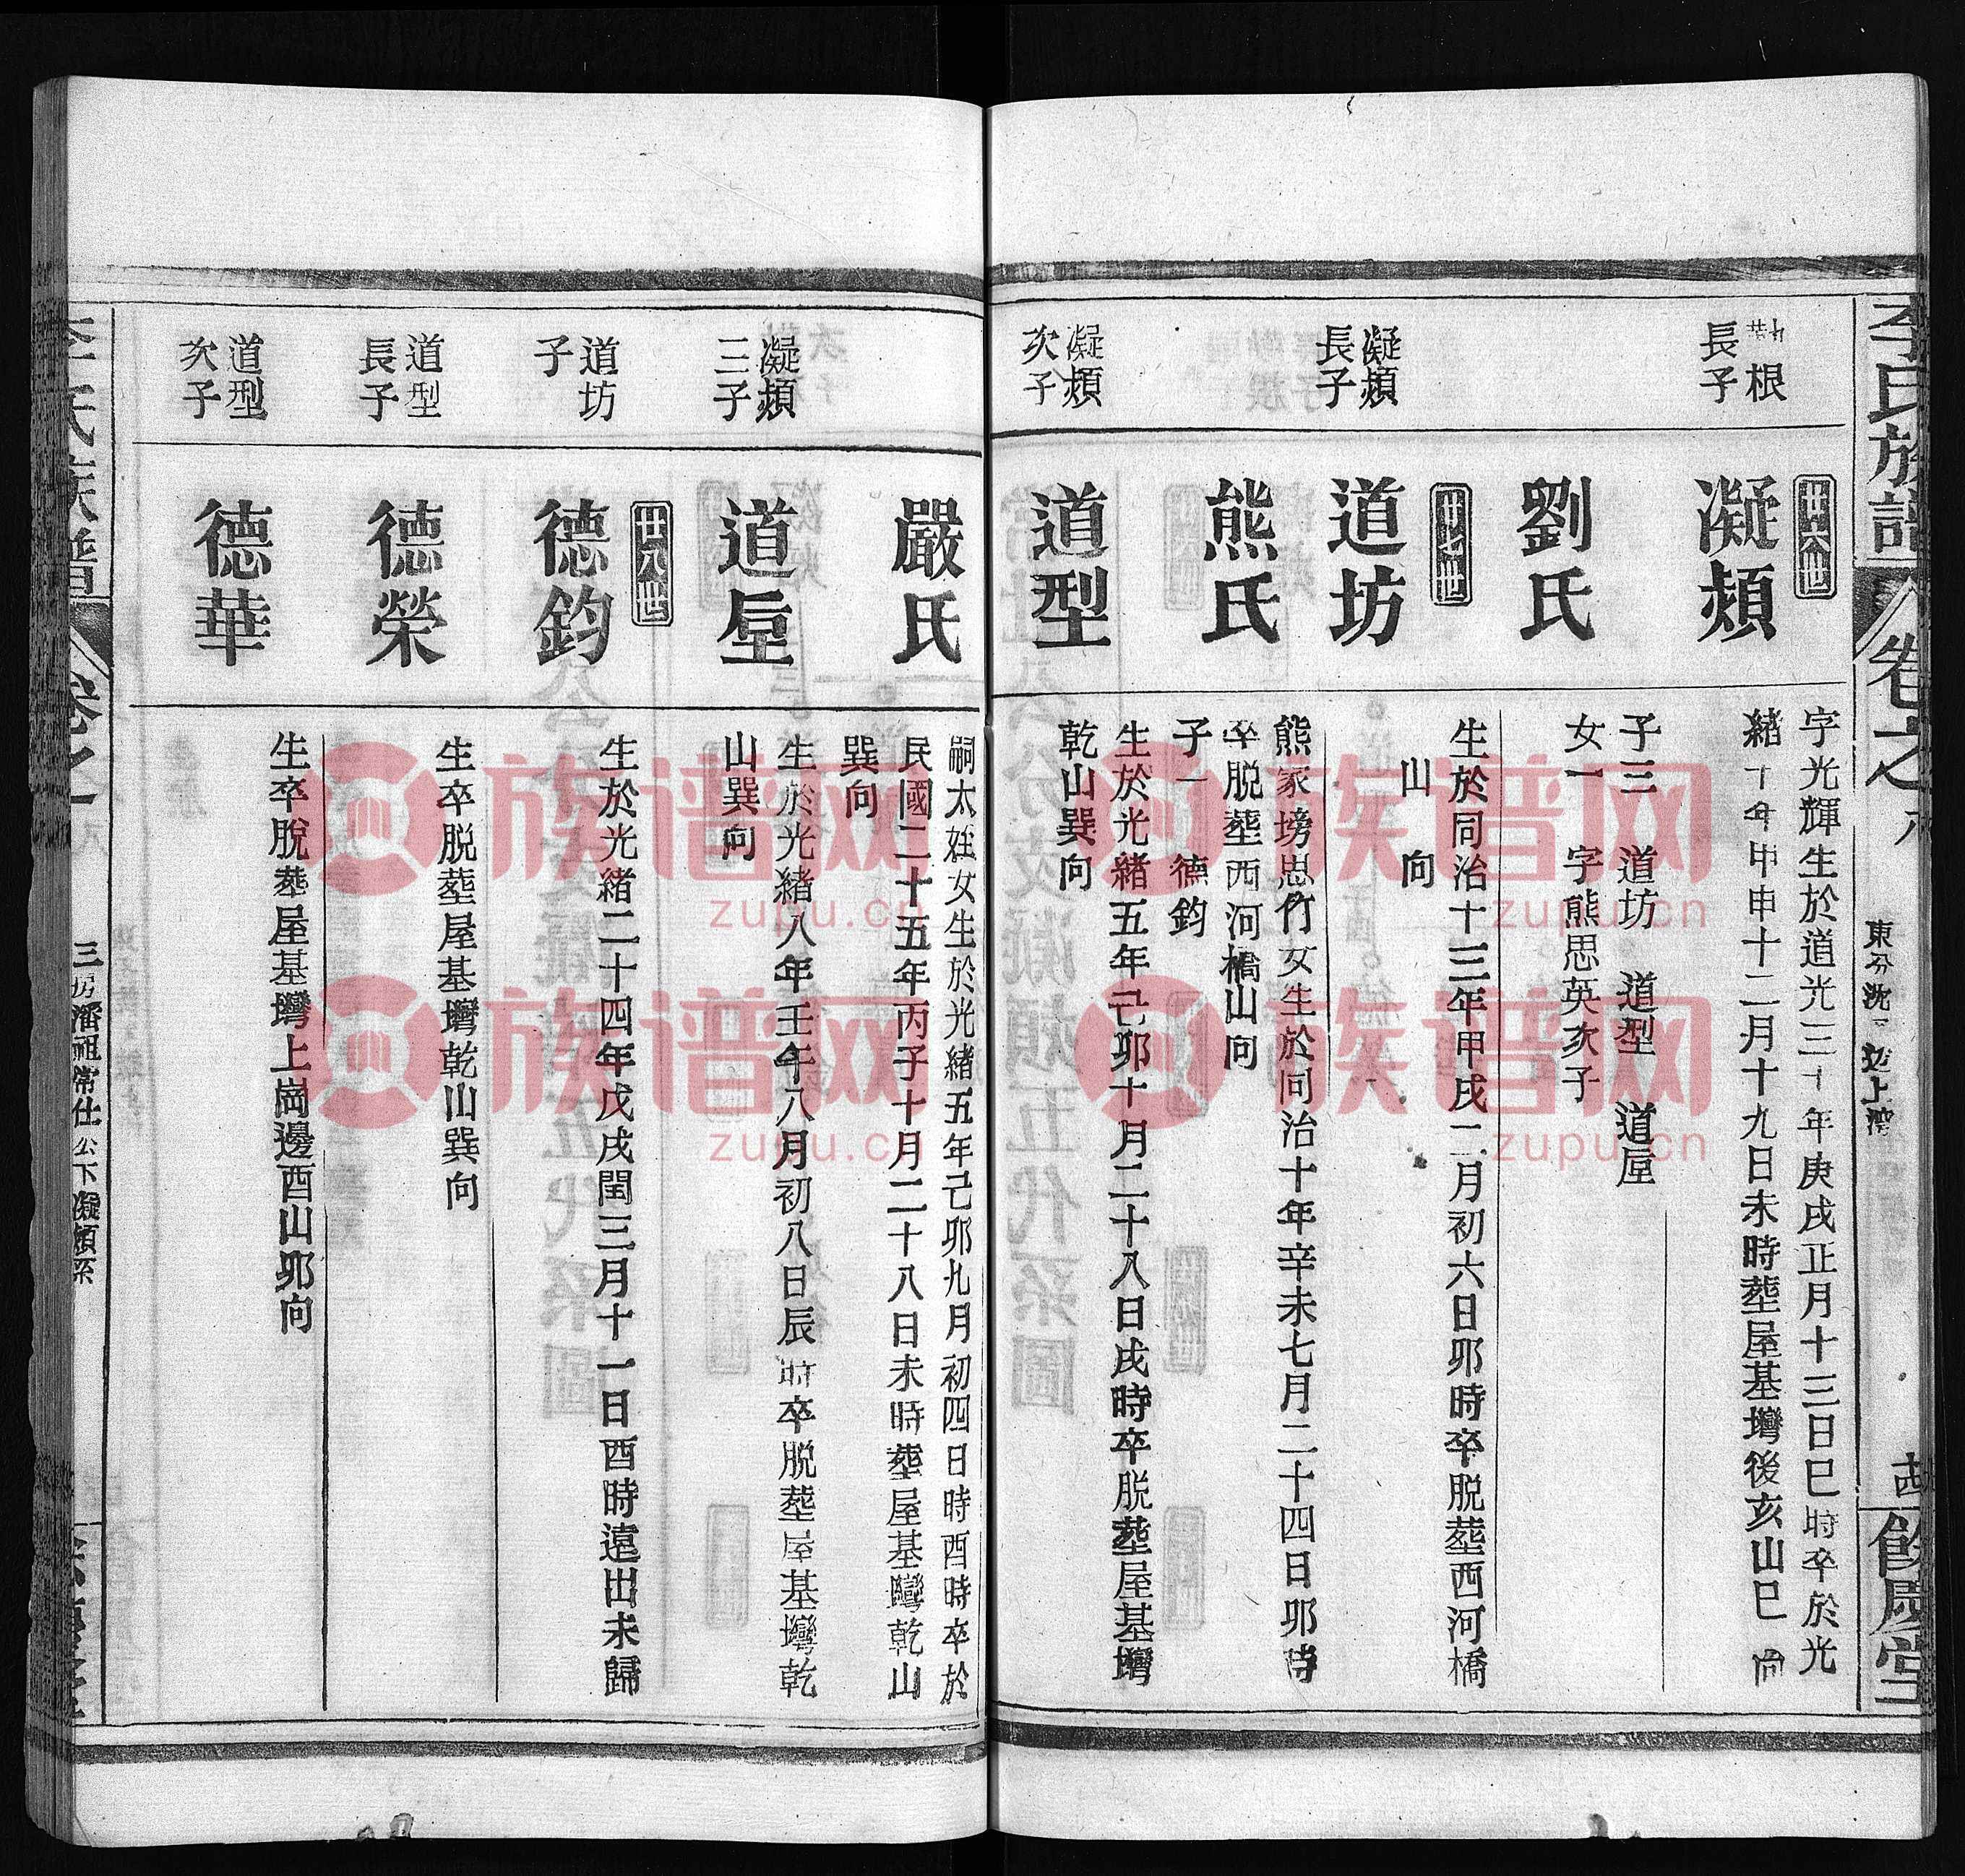 李氏族譜
卷之八
東分沈
上灣
餘慶堂
根
長子
廿六世
凝頰
字光輝生於道光三十年庚戌正月十三日巳時卒於光
緒十年甲申十二月十九日未時塟屋基塆後亥山巳向
劉氏
子三 道坊 道型 道垕
女一 字熊思英次子
凝頰
長子
廿七世
道坊
生於同治十三年甲戌二月初六日卯時卒脱塟西河橋
山 向
熊氏
熊家塝思竹女生於同治十年辛未七月二十四日卯時
卒脱塟西河橋山向
子一 德鈞
凝頰
次子
道型
生於光緒五年己卯十月二十八日戌時卒脱塟屋基塆
乾山巽向
嚴氏
嗣太姓女生於光緒五年己卯九月初四日時酉時卒於
民國二十五年丙子十月二十八日未時塟屋基塆乾山
巽向
凝頰
三子
道垕
生於光緒八年壬午八月初八日辰時卒脱塟屋基塆乾
山巽向
道坊
子
廿八世
德鈞
生於光緒二十四年戊戌閏三月十一日酉時遠出未歸
道型
長子
德榮
生卒脱塟屋基塆乾山巽向
道型
次子
德華
生卒脫塟屋基塆上崗邊酉山卯向
三房潘祖常仕公下凝頰系
族谱网
zupu.cn
族谱网
zupu.cn
族谱网
zupu.cn
族谱网
zupu.cn